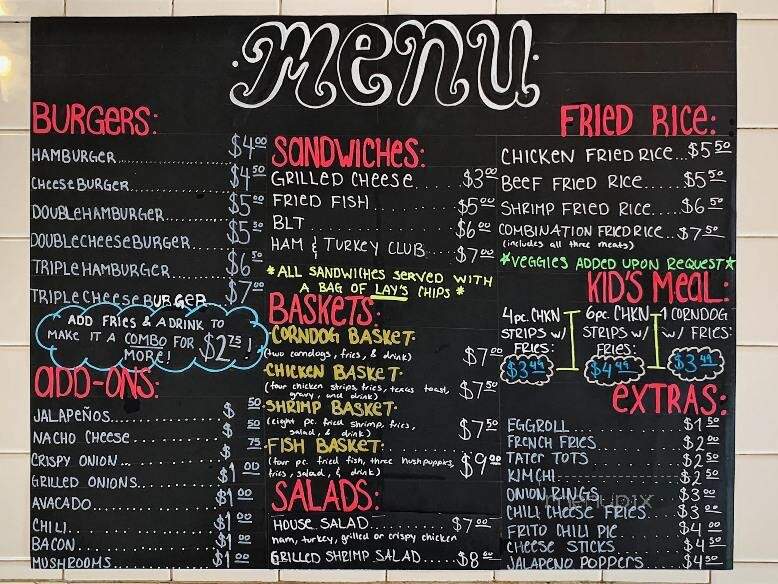 menu
BURGERS:
HAMBURGER $4.00
CHEESE BURGER $4.50
DOUBLE HAMBURGER $5.00
DOUBLE CHEESE BURGER $5.50
TRIPLE HAMBURGER $6.50
TRIPLE CHEESE BURGER $7.00
ADD FRIES & A DRINK TO
MAKE IT A COMBO FOR $2.75
MORE!
ADD-ONS:
JALAPEÑOS $.50
NACHO CHEESE $.50
CRISPY ONION $.75
GRILLED ONIONS $1.00
AVACADO $1.00
CHILI $1.00
BACON $1.00
MUSHROOMS $1.00
SANDWICHES:
GRILLED CHEESE $3.00
FRIED FISH $5.00
BLT $6.00
HAM & TURKEY CLUB $7.00
*ALL SANDWICHES SERVED WITH
A BAG OF LAY'S CHIPS*
BASKETS:
CORNDOG BASKET
(two corndogs, fries, & drink) $7.00
CHICKEN BASKET
(four chicken strips, fries, texas toast,
gravy, and drink) $7.50
SHRIMP BASKET
(eight pc. fried shrimp, fries,
salad, & drink) $7.50
FISH BASKET
(four pc. fried fish, three hushpuppies,
fries, salad, & drink) $9.00
SALADS:
HOUSE SALAD $7.00
ham, turkey, grilled or crispy chicken
GRILLED SHRIMP SALAD $8
FRIED RICE:
CHICKEN FRIED RICE $5.50
BEEF FRIED RICE $5.50
SHRIMP FRIED RICE $6.50
COMBINATION FRIED RICE $7.50
(includes all three meats)
*VEGGIES ADDED UPON REQUEST*
KID'S MEAL:
4pc. CHKN STRIPS w/ FRIES: $3.49
6pc. CHKN STRIPS w/ FRIES: $4.99
1 CORNDOG w/ FRIES: $3.49
EXTRAS:
EGGROLL $1.50
FRENCH FRIES $2.00
TATER TOTS $2.50
KIMCHI $2.50
ONION RINGS $3.00
CHILI CHEESE FRIES $3.00
FRITO CHILI PIE $4.00
CHEESE STICKS $4.50
JALAPENO POPPERS $4.50